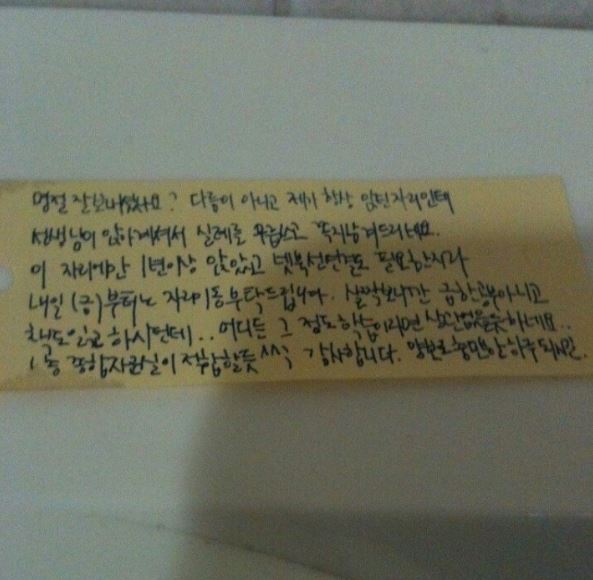 명절 잘보내셨나요? 다름이 아니고 제가 항상 앉던자리인데
선생님이 앉아계셔서 실례를 무릅쓰고 쪽지남겨드리네요.
이 자리에만 1년이상 앉았고 넷북선연결도 필요한지라
내일 (금)부터는 자리이동부탁드립니다. 살짝보니간 급한공부아니고
책도읽고 하시던데.. 어디든 그 정도학습이라면 상관없을듯하네요..
1층 종합자료실이 적합할듯^^; 감사합니다.